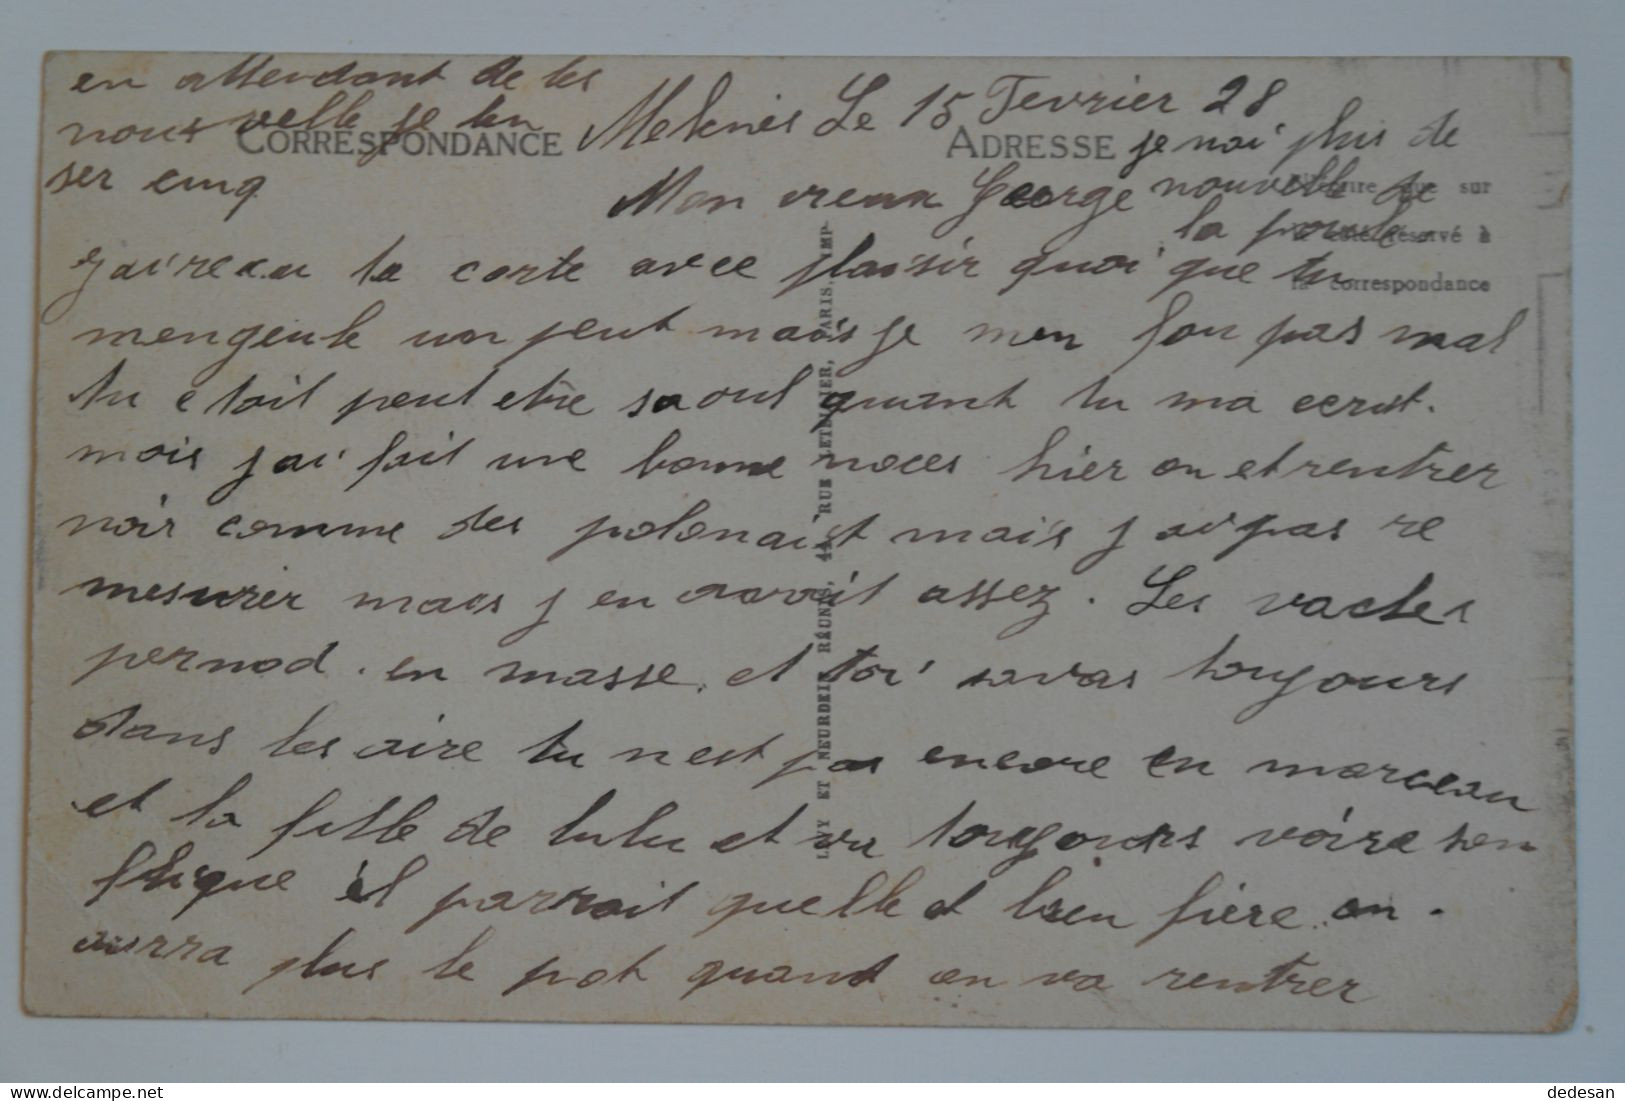 en attendant de tes
nous velle je ten
ser cinq
CORRESPONDANCE
Meknes Le 15 Fevrier 28
ADRESSE
je nai plus de
nouvelle de
la poule
N'écrire que sur
le côté réservé à
la correspondance
Mon vieux George
j'ai recu ta carte avec plaisir quoi que tu
mengeule un peut mais je men fou pas mal
tu etait peut etre saoul quant tu ma ecrit.
mais j ai fait une bonne noces hier on et rentrer
noir comme des polonais mais j ai pas re
mesurer mais j en avait assez. Les vaches
pernod. en masse. et toi savas toujours
dans les aire tu nest pas encore en morceau
et la fille de lulu et va toujours voire son
flique il parrait quelle et bien fière. on.
aurra plus le pot quand on va rentrer
LEVY ET NEURDEIN RÉUNIS, 44, RUE LETELLIER, PARIS, IMP.
dedesan